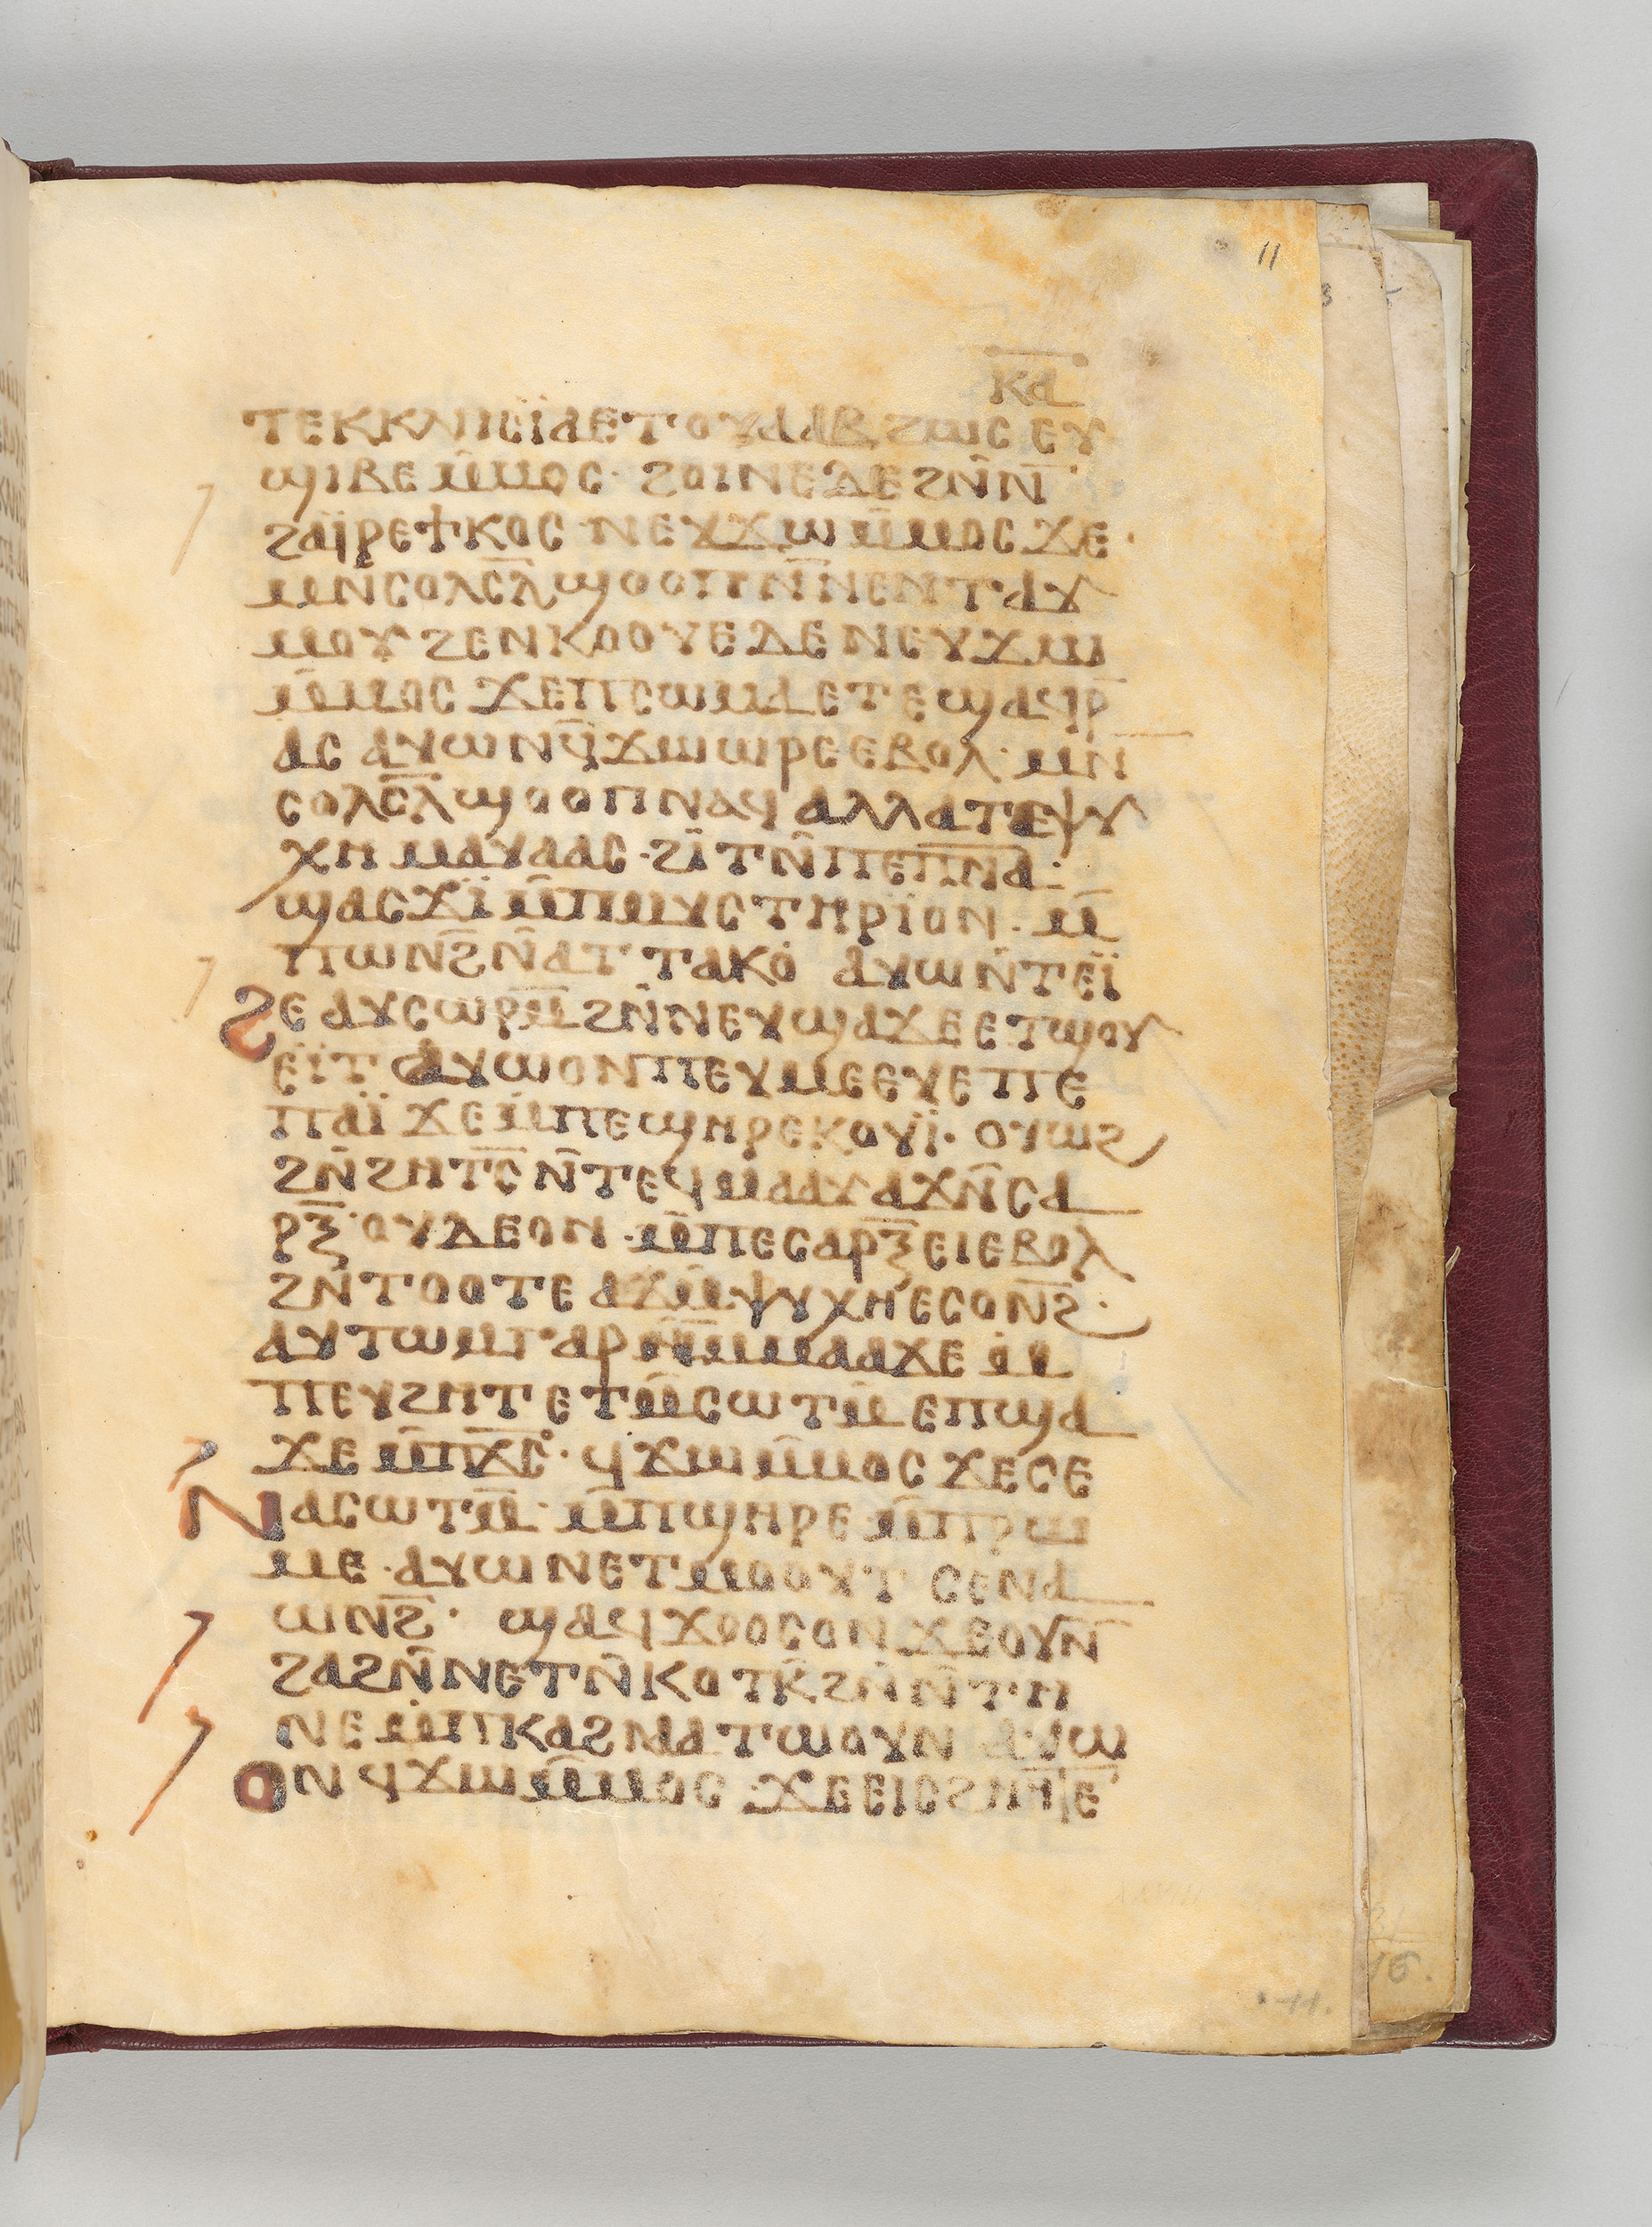 11
ⲕⲁ
ⲧⲉⲕⲕⲗⲏⲥⲓ̈ⲁ ⲉⲧⲟⲩⲁⲁⲃ ϩⲱⲥ ⲉⲩ
ϣⲓⲃⲉ ⲙ̄ⲙⲟⲥ· ϩⲟⲓⲛⲉ ⲇⲉ ϩⲛ̄ⲛ̄
ϩⲁⲓ̈ⲣⲉϯⲕⲟⲥ ⲛⲉⲩϫⲱ ⲙ̄ⲙⲟⲥ ϫⲉ·
ⲙⲛ ⲥⲟⲗⲥ̄ⲗ ϣⲟⲟⲡ ⲛ̄ⲛⲉⲛⲧⲁⲩ
ⲙⲟⲩ ϩⲉⲛⲕⲟⲟⲩⲉ ⲇⲉ ⲛⲉⲩϫⲱ
ⲙ̄ⲙⲟⲥ ϫⲉ ⲡⲥⲱⲙⲁ ⲉⲧⲉϣⲁϥⲣ̄
ⲁⲥ ⲁⲩⲱ ⲛϥ̄ϫⲱⲱⲣⲉ ⲉⲃⲟⲗ· ⲙⲛ̄
ⲥⲟⲗⲥ̄ⲗ ϣⲟⲟⲡ ⲛⲁϥ ⲁⲗⲗⲁ ⲧⲉⲯⲩ
ⲭⲏ ⲙⲁⲩⲁⲁⲥ· ϩⲓ̈ⲧⲛ̄ ⲡⲉⲡ̄ⲛ̄ⲁ̄·
ϣⲁⲥϫⲓ̈ ⲙ̄ⲡⲙⲩⲥⲧⲏⲣⲓ̈ⲟⲛ· ⲙ̄
ⲡⲱⲛϩ̄ ⲛ̄ⲁⲧⲧⲁⲕⲟ ⲁⲩⲱ ⲛ̄ⲧⲉⲓ̈
ϩⲉ ⲁⲩⲥⲱⲣⲙ̄ ϩⲛ̄ ⲛⲉⲩϣⲁϫⲉ ⲉⲧϣⲟⲩ
ⲉⲓ̈ⲧ ⲁⲩⲱ ⲟⲛ ⲡⲉⲩⲙⲉⲉⲩⲉ ⲡⲉ
ⲡⲁⲓ̈ ϫⲉ ⲙ̄ⲡⲉ ϣⲏⲣⲉ ⲕⲟⲩⲓ̈· ⲟⲩⲱϩ
ϩⲛ̄ ϩⲏⲧⲥ̄ ⲛ̄ⲧⲉϥⲙⲁⲁⲩ ⲁϫⲛ̄ ⲥⲁ
ⲣⲝ̄· ⲟⲩⲇⲉ ⲟⲛ· ⲙ̄ⲡⲉ ⲥⲁⲣⲝ̄ ⲉⲓ ⲉⲃⲟⲗ
ϩⲛ̄ ⲧⲟⲟⲧⲉ ⲁϫⲙ̄ ⲯⲩⲭⲏ ⲉⲥⲟⲛϩ̄·
ⲁⲩⲧⲱⲙ ⲅⲁⲣ ⲛ̄ⲙ̄ⲙⲁⲁϫⲉ ⲙ̄
ⲡⲉⲩϩⲏⲧ ⲉⲧⲙ̄ⲥⲱⲧⲙ̄ ⲉⲡϣⲁ
ϫⲉ ⲙ̄ⲡⲭ̄ⲥ̄· ϥϫⲱ ⲙ̄ⲙⲟⲥ ϫⲉ ⲥⲉ
ⲛⲁⲥⲱⲧⲙ̄· ⲙ̄ⲡϣⲏⲣⲉ ⲙ̄ⲡⲣⲱ
ⲙⲉ· ⲁⲩⲱ ⲛⲉⲧⲙⲟⲟⲩⲧ ⲥⲉⲛⲁ
ⲱⲛϩ̄· ϣⲁϥϫⲟⲟⲥ ⲟⲛ ϫⲉ ⲟⲩⲛ̄
ϩⲁϩ ⲛ̄ⲛⲉⲧⲛ̄ⲕⲟⲧⲕ̄ ϩⲛ̄ ⲛ̄ⲧⲏ
ⲛⲉ ⲙ̄ⲡⲕⲁϩ ⲛⲁⲧⲱⲟⲩⲛ ⲁⲩⲱ
ⲟⲛ ϥϫⲱ ⲙ̄ⲙⲟⲥ ϫⲉ ⲉⲓⲥ ϩⲏⲏⲧⲉ